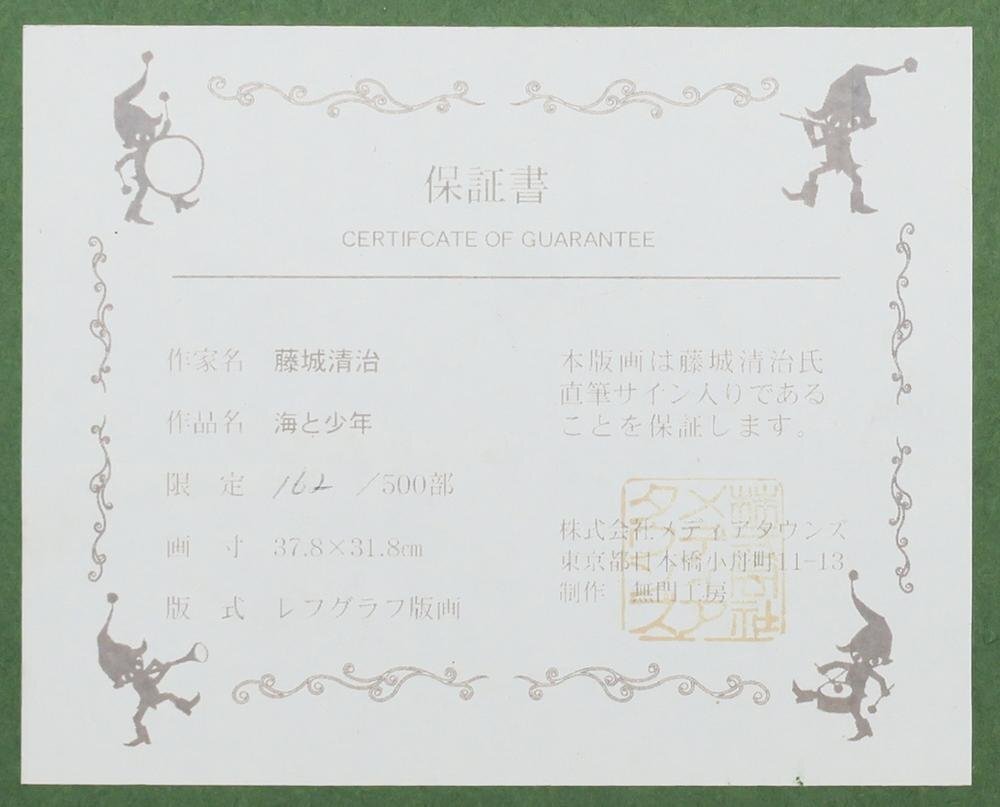 保証書
CERTIFCATE OF GUARANTEE
作家名 藤城清治
作品名 海と少年
限 定 162 /500部
画 寸 37.8×31.8cm
版 式 レフグラフ版画
本版画は藤城清治氏
直筆サイン入りである
ことを保証します。
株式会社メディアタウンズ
東京都日本橋小舟町11-13
制作 無門工房